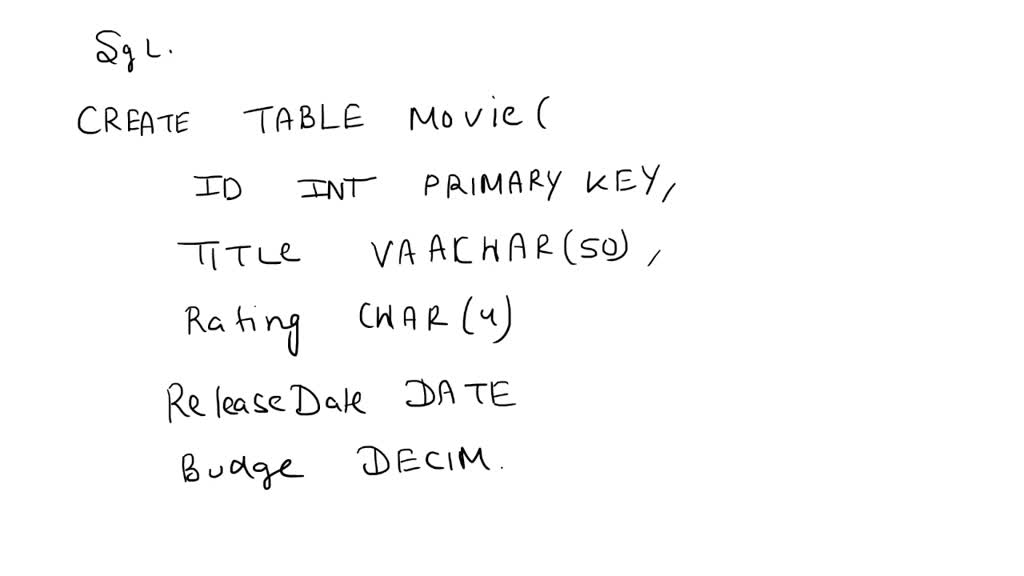 SqL.
CREATE TABLE Movie(
ID INT PRIMARY KEY,
TITLe VAACHAR(50),
Rating CHAR(4)
ReleaseDate DATE
Budge DECIM.